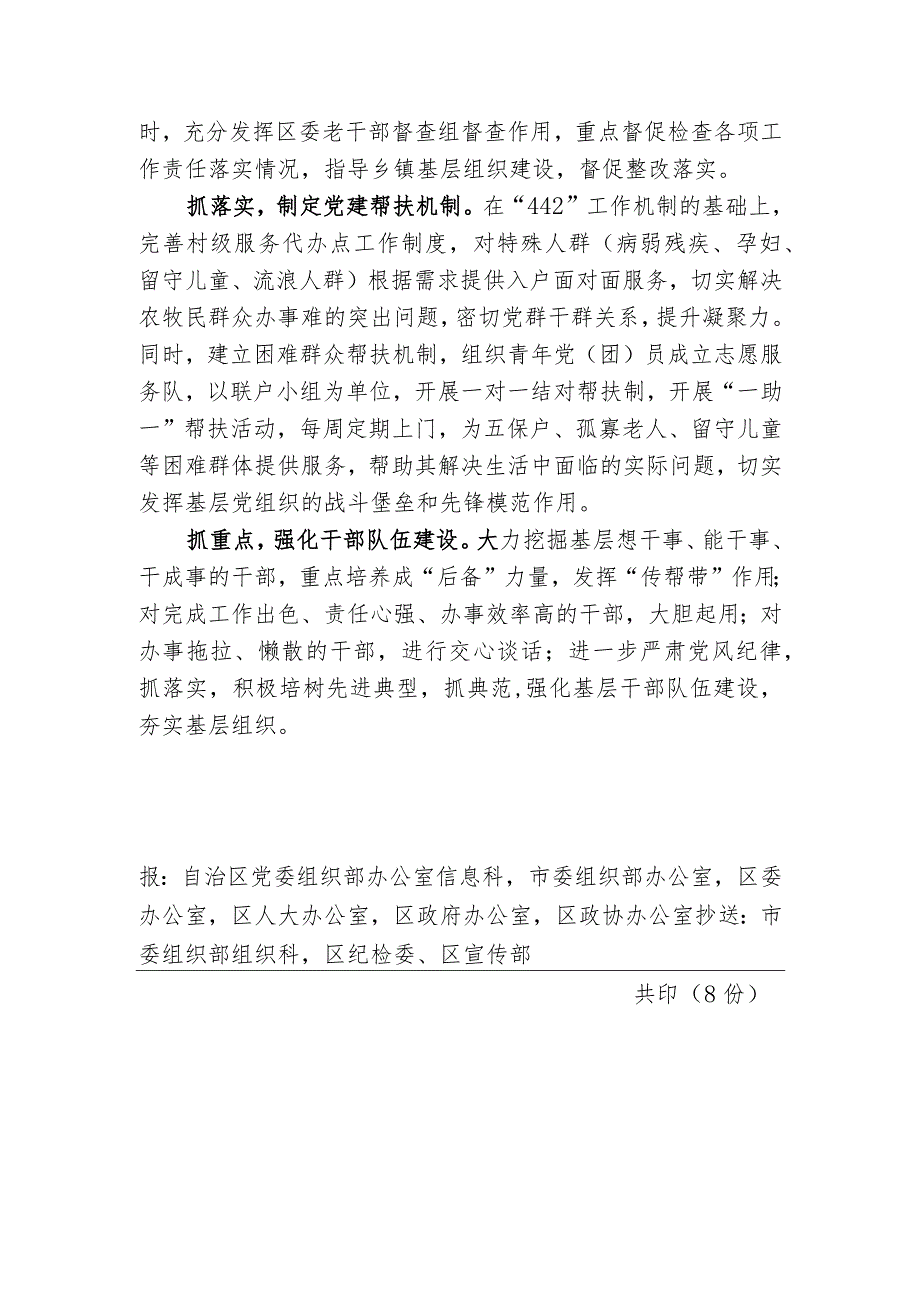 时，充分发挥区委老干部督查组督查作用，重点督促检查各项工
作责任落实情况，指导乡镇基层组织建设，督促整改落实。
抓落实，制定党建帮扶机制。在“442”工作机制的基础上，
完善村级服务代办点工作制度，对特殊人群（病弱残疾、孕妇、
留守儿童、流浪人群）根据需求提供入户面对面服务，切实解决
农牧民群众办事难的突出问题，密切党群干群关系，提升凝聚力。
同时，建立困难群众帮扶机制，组织青年党（团）员成立志愿服
务队，以联户小组为单位，开展一对一结对帮扶制，开展“一助
一”帮扶活动，每周定期上门，为五保户、孤寡老人、留守儿童
等困难群体提供服务，帮助其解决生活中面临的实际问题，切实
发挥基层党组织的战斗堡垒和先锋模范作用。
抓重点，强化干部队伍建设。大力挖掘基层想干事、能干事、
干成事的干部，重点培养成“后备”力量，发挥“传帮带”作用；
对完成工作出色、责任心强、办事效率高的干部，大胆起用；对
办事拖拉、懒散的干部，进行交心谈话；进一步严肃党风纪律，
抓落实，积极培树先进典型，抓典范,强化基层干部队伍建设，
夯实基层组织。
报：自治区党委组织部办公室信息科，市委组织部办公室，区委
办公室，区人大办公室，区政府办公室，区政协办公室抄送：市
委组织部组织科，区纪检委、区宣传部
共印（8 份）